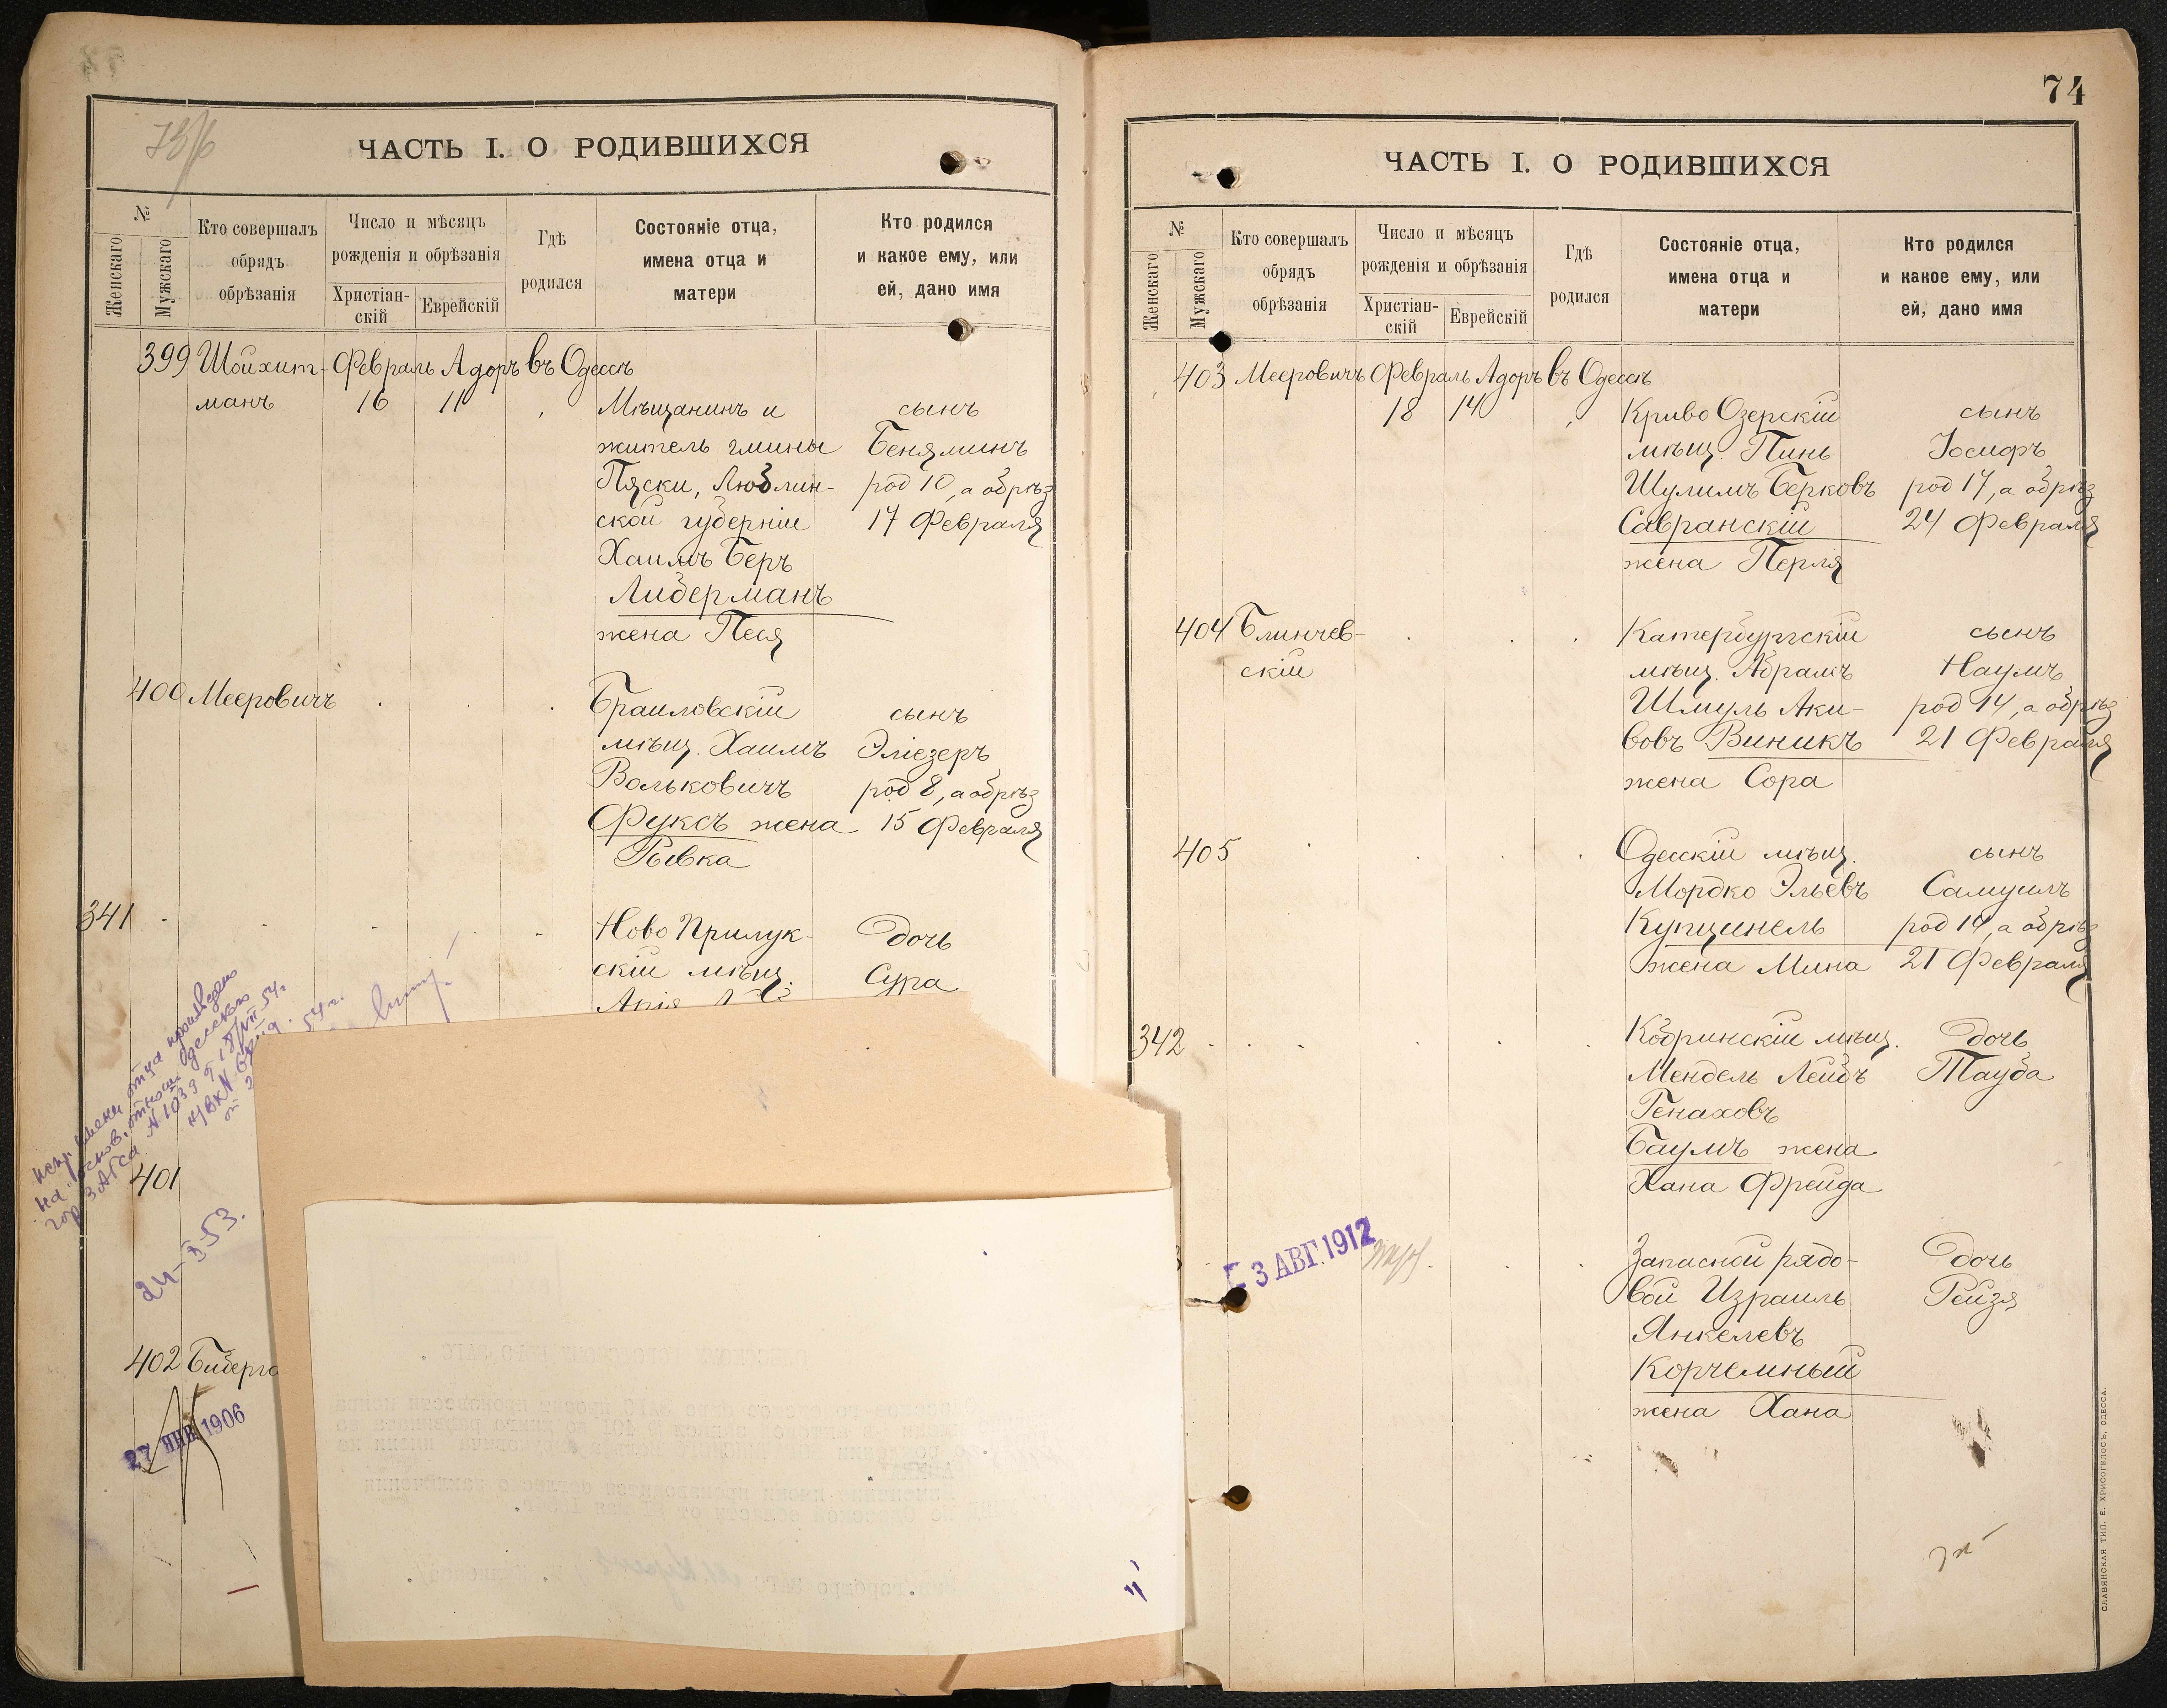 73/6
ЧАСТЬ I. О РОДИВШИХСЯ
№
Женскаго
Мужскаго
Кто совершалъ
обрядъ
обрѣзанія
Число и мѣсяцъ
рожденія и обрѣзанія
Христіан-
скій
Еврейскій
Гдѣ
родился
Состояніе отца,
имена отца и
матери
Кто родился
и какое ему, или
ей, дано имя
399 Шойхит- Февраль Адоръ въ Одессѣ
манъ 16 11 Мѣщанинъ и сынъ
житель гмины Беняминъ
Пяски, Люблин- род 10, а обрѣз
ской губерніи 17 Февраля
Хаимъ Беръ
Либерманъ
жена Песя
400 Мееровичъ Браиловскій сынъ
мѣщ. Хаимъ Эліезеръ
Вольковичъ род 8, а обрѣз
Фуксъ жена 15 Февраля
Рывка
341 Ново Прилук- Дочь
скій мѣщ. Сура
401
24-X-53.
402 Биберга
27 ЯНВ 1906
74
ЧАСТЬ I. О РОДИВШИХСЯ
№
Женскаго
Мужскаго
Кто совершалъ
обрядъ
обрѣзанія
Число и мѣсяцъ
рожденія и обрѣзанія
Христіан-
скій
Еврейскій
Гдѣ
родился
Состояніе отца,
имена отца и
матери
Кто родился
и какое ему, или
ей, дано имя
403 Мееровичъ Февраль Адоръ въ Одессѣ
18 14 Криво Озерскій сынъ
мѣщ. Пинь Іосифъ
Шулимъ Берковъ род 17, а обрѣз
Савранскій 24 Февраля
жена Перля
404 Блинчев- Катербургскій сынъ
скій мѣщ. Абрамъ Наумъ
Шмуль Аки- род 14, а обрѣз
вовъ Виникъ 21 Февраля
жена Сора
405 Одесскій мѣщ. сынъ
Мордко Эльевъ Самуилъ
Купцинель род 14, а обрѣз
жена Мина 21 Февраля
342 Кобринскій мѣщ. Дочь
Мендель Лейбъ Тауба
Генаховъ
Баумъ жена
Хана Фрейда
3 АВГ. 1912 Запасной рядо- Дочь
вой Израиль Рейзя
Янкелевъ
Корчемный
жена Хана
СЛАВЯНСКАЯ ТИП. Е. ХРИСОГЕЛОСЪ, ОДЕССА.